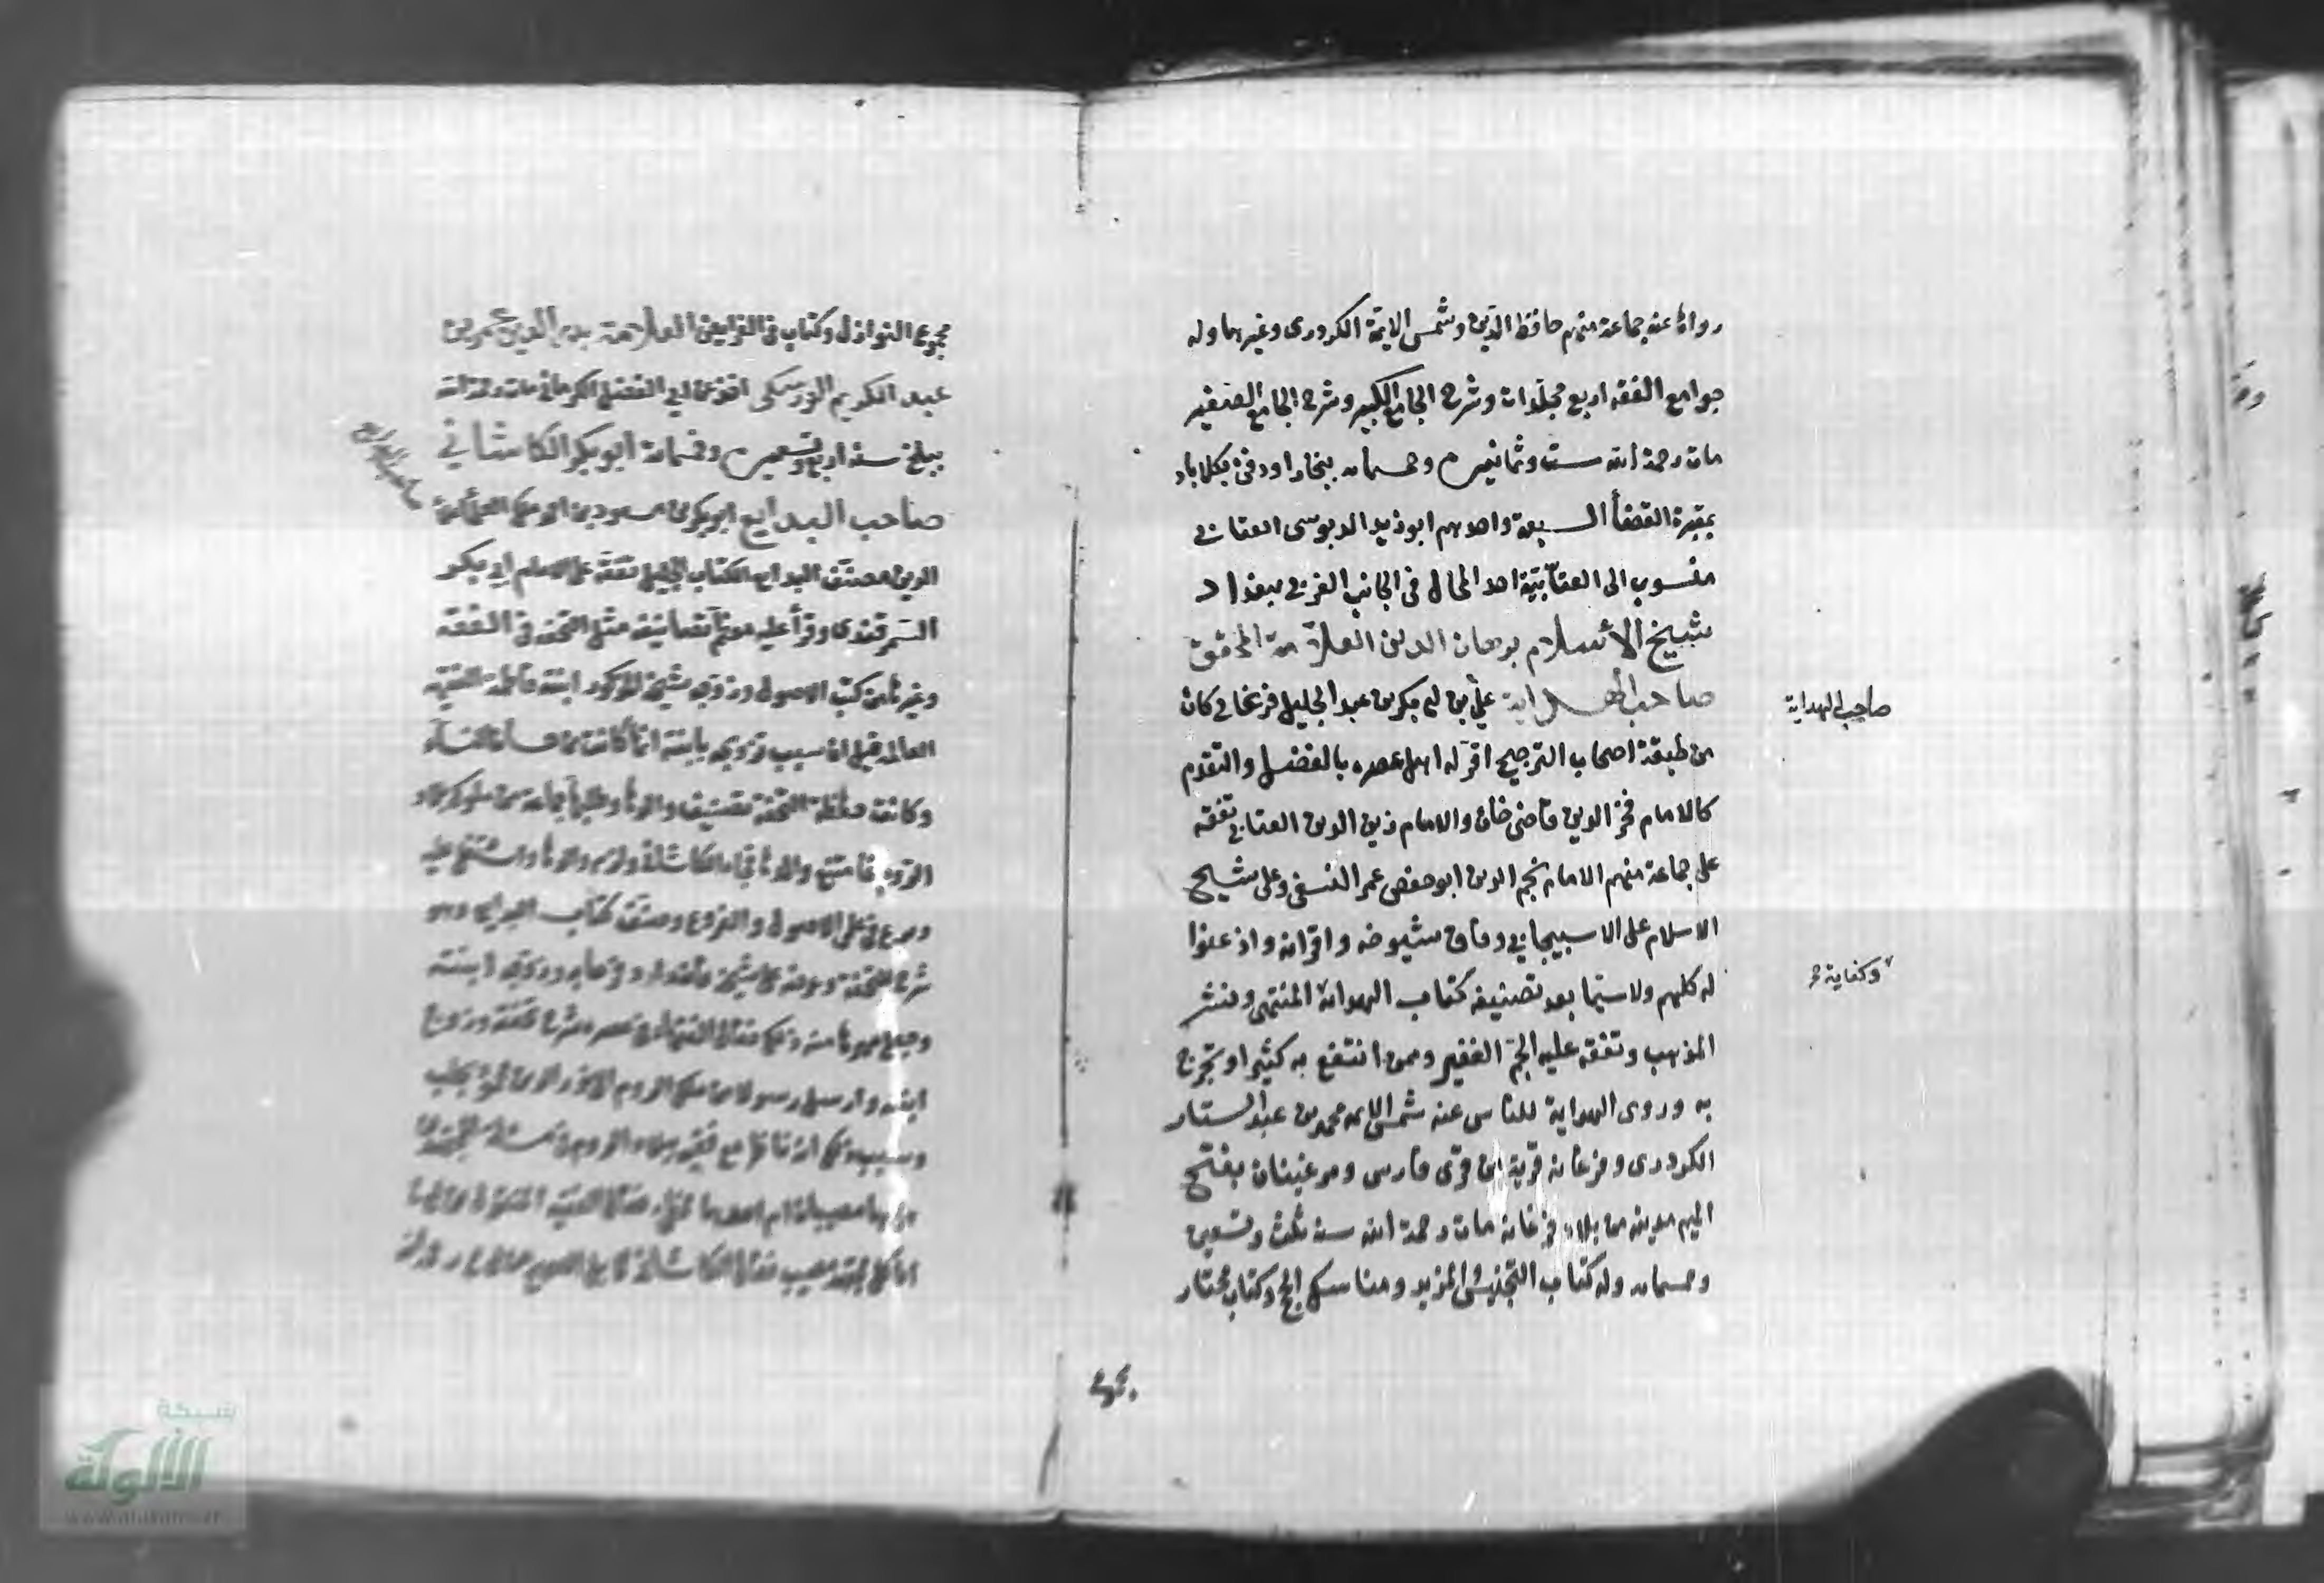 رواه عنه جماعة منهم حافظ الدين وشمس الايمة الكردرى وغيرهما وله
جوامع الفقه اربع مجلدات وشرح الجامع الكبير وشرح الجامع الصغير
مات رحمة الله ست وثمانين وخمسمايه ببخارا ودفن بكلاباد
بمقبرة القضأ السبعة واحدهم ابو زيد الدبوسى العتابي
منسوب الى العتابية احد المحال فى الجانب الغربي ببغداد
شيخ الأسلام برهان الدين العلامة المحقق
صاحب الهداية علي بن ابي بكر بن عبد الجليل فرغاني كان
من طبقة اصحاب الترجيح اقر له اهل عصره بالفضل والتقدم
كالامام فخر الدين قاضى خان والامام زين الدين العتابي تفقه
على جماعة منهم الامام نجم الدين ابو حفص عمر النسفى وعلى شيخ
الاسلام على الاسبيجابي وفاق شيوخه واقرانه واذعنوا
له كلهم ولا سيما بعد تصنيفه كتاب الهداية المنتهى ونشر
المذهب وتفقه عليه الجم الغفير وممن انتفع به كثيرا وتخرج
به وروى الهداية للناس عنه شمس الايمه محمد بن عبد الستار
الكردرى وفرغانه قرية من قرى فارس ومرغينان بفتح
الميم مدينه من بلاد فرغانه مات رحمة الله سنه ثلث وتسعين
وخمسمايه وله كتاب التجنيس والمزيد ومناسك الحج وكتاب مختار
صاحب الهداية
وكفاية
مجموع النوازل وكتاب فى الفرايض العلامة بدر الدين عمر بن
عبد الكريم الورسكى اخذ عن ابي الفضل الكرمانى مات رحمة الله
ببلخ سنه اربع وتسعين وخمسمايه ابو بكر الكاشاني
صاحب البدايع ابو بكر بن مسعود بن احمد
الدين مصنف البدايع الكتاب الجليل تفقه على الامام ابي بكر
السمرقندى وقرأ عليه معظم تصانيفه مثل التحفه فى الفقه
وغيرها من كتب الاصول وزوجه شيخه المذكور ابنته فاطمة الفقيه
العالمه قيل ان سبب تزوجه بابنته انها كانت من حسان النسآء
وكانت حفظة التحفة تصنيف والدها وطلبها جماعة من ملوك بلاد
الروم فامتنع والدها فجاء الكاشانى ولزم والدها واشتغل عليه
وبرع فى علمي الاصول والفروع وصنف كتاب البدايع وهو
شرح التحفة وعرضه على شيخه فازداد فرحا به وزوجه ابنته
وجعل مهرها منه ذلك فقال الفقهاء فى عصره شرح تحفته وزوج
ابنته وارسل رسولا من ملك الروم الى نور الدين محمود بحلب
وسبب ذلك انه تناظر مع فقيه ببلاد الروم فى مسئلة المجتهدين
هل هما مصيبان ام احدهما مخطى فقال الفقيه المنقول عن ابي حنيفة
ان كل مجتهد مصيب فقال الكاشانى
شبكة
الألوكة